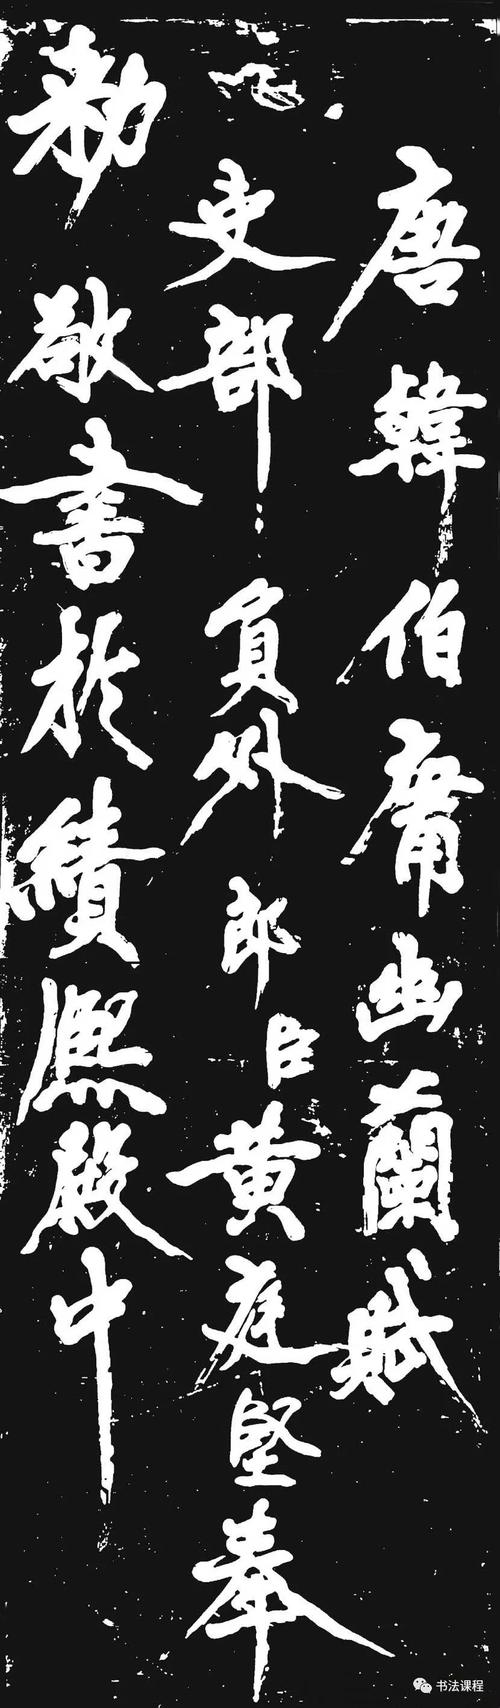 唐韓伯庸幽蘭賦
吏部員外郎臣黃庭堅奉
勅敬書於績熙殿中
書法课程